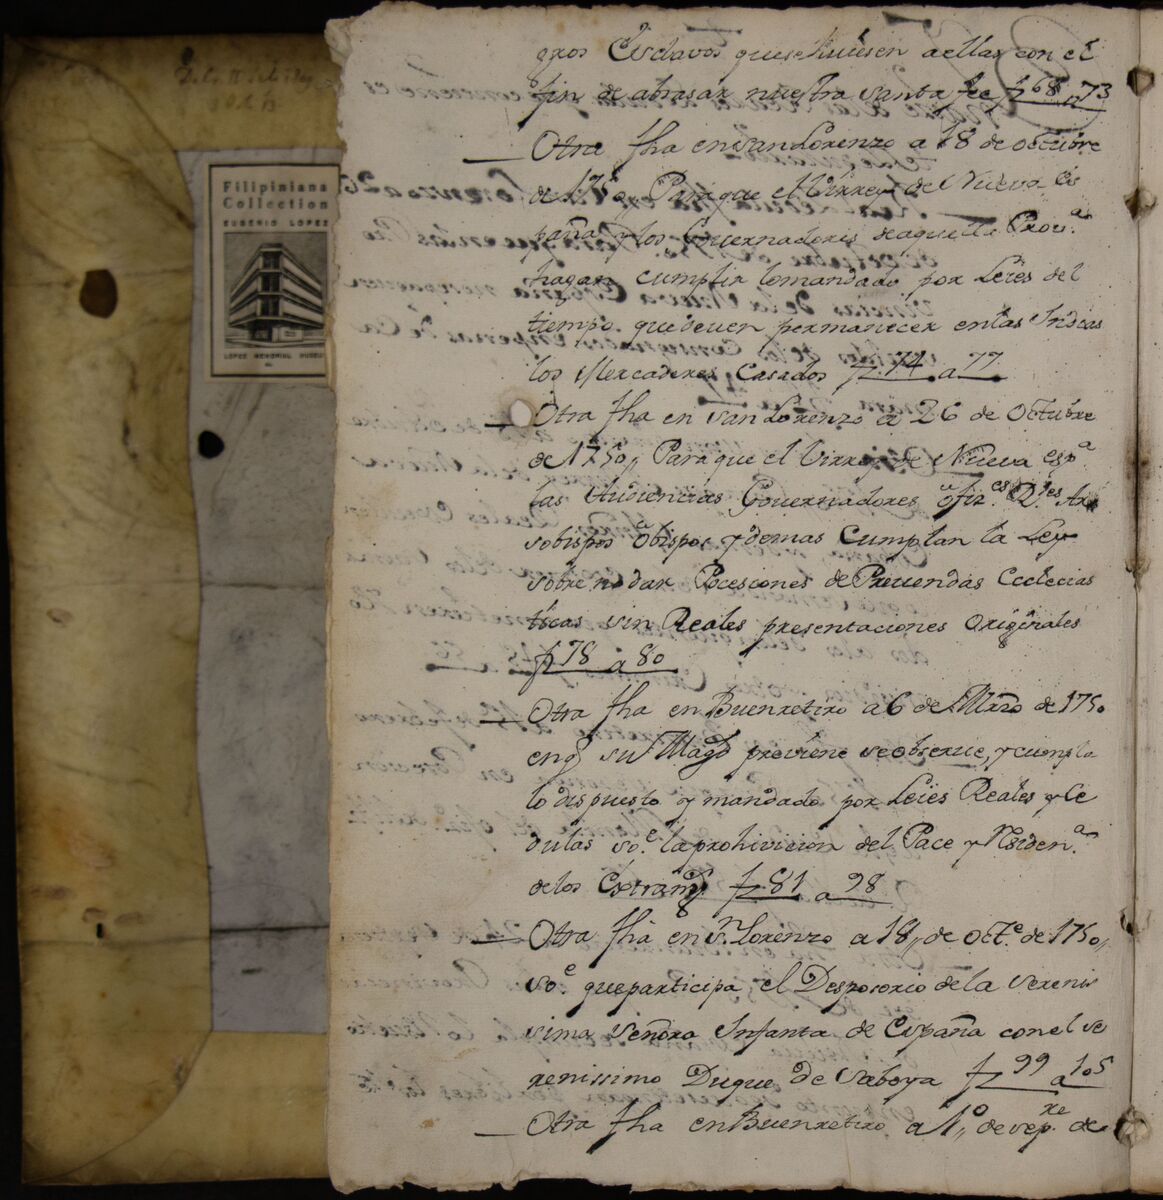 Filipiniana
Collection
EUGENIO LOPEZ
LOPEZ MEMORIAL MUSEUM
gros Esclavos que se huiesen a ellas con el
fin de abrasar nuestra santa fee fs 68 a 73
Otra fha en san Lorenzo a 18 de octubre
de 1750 Para que el Virrey de Nueva Es
paña y los Governadores de aquella Prova
hagan cumplir lo mandado por Leies del
tiempo que deven permanecer en las Indias
los Mercaderes Casados fs 74 a 77
Otra fha en san Lorenzo a 26 de Octubre
de 1750,, Para que el Virrey de Nueva espa
las Audiencias Governadores ofizes Rles Ar
sobispos Obispos y demas Cumplan la Ley
sobre no dar Pocesiones de Prevendas Ecclecias
ticas sin Reales presentaciones Originales
fs 78 a 80
Otra fha en Buenretiro a 6 de Marzo de 1750
enq su Magd previene se observe, y cumpla
lo dispuesto y mandado por Leies Reales y Ce
dulas soe la prohivicion del Pace y Residena
de los Extrangs fs 81 a 98
Otra fha en Sn Lorenzo a 18,, de octe de 1750,,
soe que participa el Desposorio de la serenis
sima señora Infanta de España con el se
renissimo Duque de Saboya fs 99 a 105
Otra fha en Buenretiro a 1o,, de sepre de